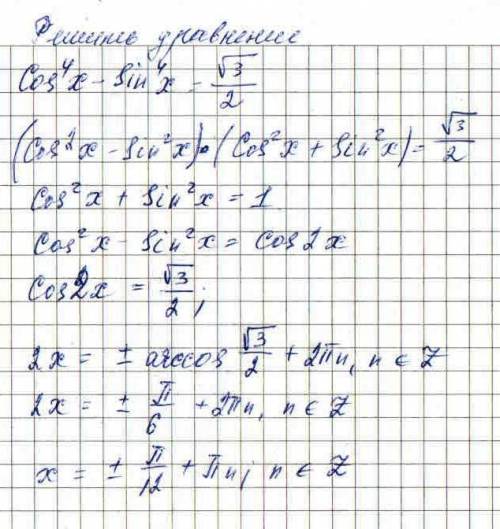 Решить уравнение
Cos⁴x - Sin⁴x = √3/2
(Cos²x - Sin²x)·(Cos²x + Sin²x) = √3/2
Cos²x + Sin²x = 1
Cos²x - Sin²x = Cos2x
Cos2x = √3/2;
2x = ± arccos √3/2 + 2πn, n ∈ Z
2x = ± π/6 + 2πn, n ∈ Z
x = ± π/12 + πn; n ∈ Z